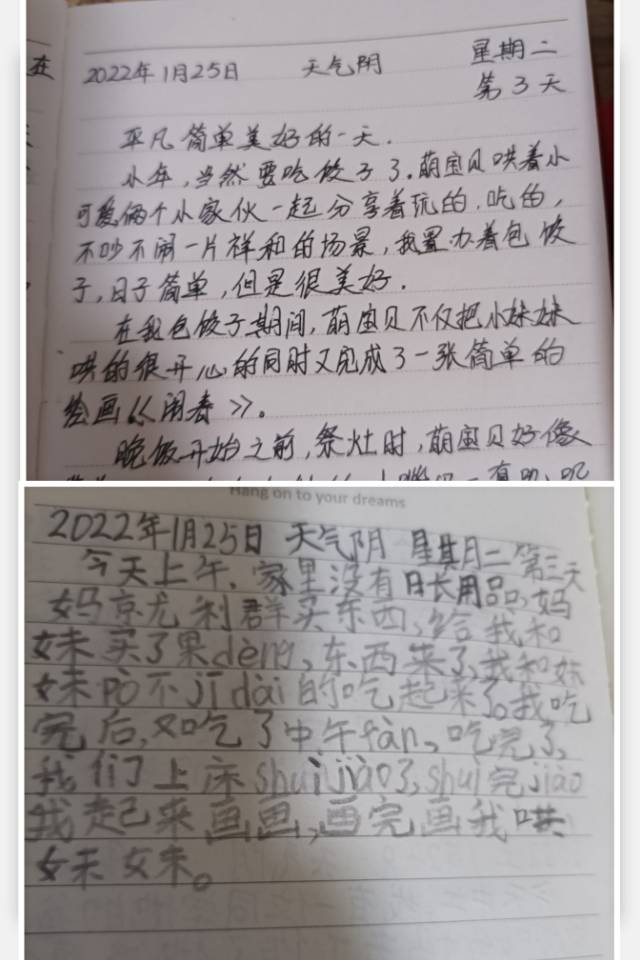 在
2022年1月25日 天气阴 星期二
第3天
平凡简单美好的一天.
小年,当然要吃饺子了.萌宝贝哄着小
可爱俩个小家伙一起分享着玩的.吃的,
不吵不闹一片祥和的场景,我置办着包饺
子,日子简单,但是很美好.
在我包饺子期间,萌宝贝不仅把小妹妹
哄的很开心的同时又完成了一张简单的
绘画《闹春》。
晚饭开始之前,祭灶时,萌宝贝好像
Hang on to your dreams
2022年1月25日 天气阴 星其月二第三天
今天上午,家里没有日长用品,妈
妈京尤利群买东西,给我和
妹买了果dèng,东西来了,我和妹
妹pò不jīdài的吃起来了。我吃
完后,又吃了中午fàn,吃完了,
我们上床shuìjiào了,shuì完jiào
我起来画画,画完画我哄
妹妹。